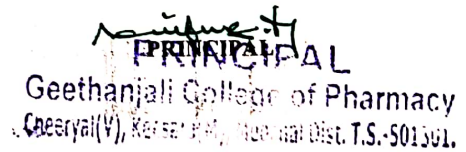 PRINCIPAL
PRINCIPAL
Geethanjali College of Pharmacy
Cheeryal(V), Dist. T.S.-501301.